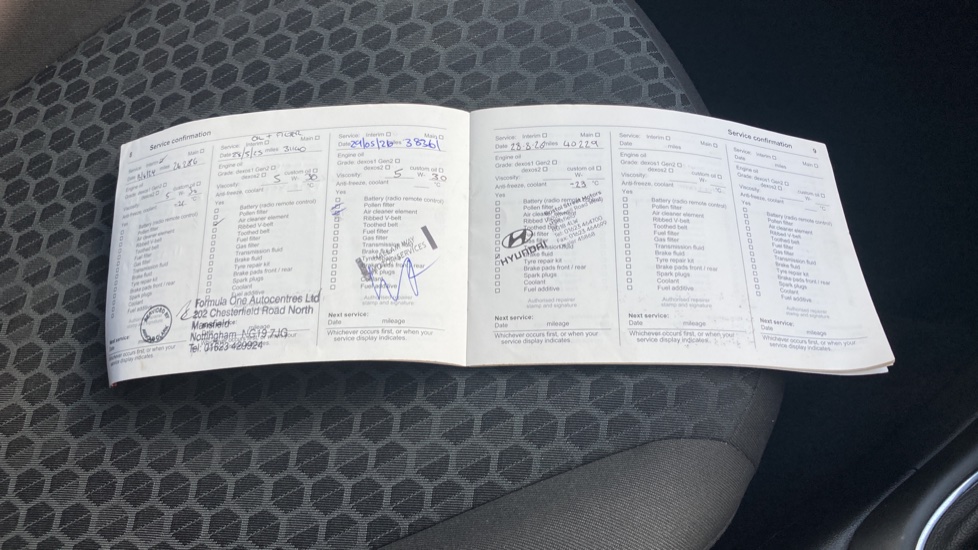 8
Service confirmation
Service: Interim
Date miles
Engine oil
Grade: dexos1 Gen2
dexos2
custom oil
Viscosity: 5 W-
Anti-freeze, coolant
Yes
Battery (radio remote control)
Pollen filter
Air cleaner element
Ribbed V-belt
Toothed belt
Fuel filter
Gas filter
Transmission fluid
Brake fluid
Tyre repair kit
Brake pads front / rear
Spark plugs
Coolant
Fuel additive
Next service:
Date mileage
Whichever occurs first, or when your
service display indicates.
Main
Date miles
Engine oil
Grade: dexos1 Gen2
dexos2
custom oil
Viscosity: 5 W- 30
Anti-freeze, coolant °C
Yes
Battery (radio remote control)
Pollen filter
Air cleaner element
Ribbed V-belt
Toothed belt
Fuel filter
Gas filter
Transmission fluid
Brake fluid
Tyre repair kit
Brake pads front / rear
Spark plugs
Coolant
Fuel additive
Formula One Autocentres Ltd
202 Chesterfield Road North
Mansfield
Nottingham NG19 7JG
Tel: 01623 429924
Whichever occurs first, or when your
service display indicates.
Service: Interim Main
Date miles
Engine oil
Grade: dexos1 Gen2
dexos2
custom oil
Viscosity: 5 W- 30
Anti-freeze, coolant °C
Yes
Battery (radio remote control)
Pollen filter
Air cleaner element
Ribbed V-belt
Toothed belt
Fuel filter
Gas filter
Transmission fluid
Brake fluid
Tyre repair kit
Brake pads front / rear
Spark plugs
Coolant
Fuel additive
Authorised repairer
stamp and signature
Next service:
Date mileage
Whichever occurs first, or when your
service display indicates.
Service: Interim Main
Date miles 40229
Engine oil
Grade: dexos1 Gen2
dexos2
custom oil
Viscosity: W-
Anti-freeze, coolant -29 °C
Yes
Battery (radio remote control)
Pollen filter
Air cleaner element
Ribbed V-belt
Toothed belt
Fuel filter
Gas filter
Transmission fluid
Brake fluid
Tyre repair kit
Brake pads front / rear
Spark plugs
Coolant
Fuel additive
HYUNDAI
Authorised repairer
stamp and signature
Next service:
Date mileage
Whichever occurs first, or when your
service display indicates.
Service: Interim Main
Date miles
Engine oil
Grade: dexos1 Gen2
dexos2
custom oil
Viscosity: W-
Anti-freeze, coolant °C
Yes
Battery (radio remote control)
Pollen filter
Air cleaner element
Ribbed V-belt
Toothed belt
Fuel filter
Gas filter
Transmission fluid
Brake fluid
Tyre repair kit
Brake pads front / rear
Spark plugs
Coolant
Fuel additive
Authorised repairer
stamp and signature
Next service:
Date mileage
Whichever occurs first, or when your
service display indicates.
Service confirmation
9
Service: Interim Main
Date miles
Engine oil
Grade: dexos1 Gen2
dexos2
custom oil
Viscosity: W-
Anti-freeze, coolant °C
Yes
Battery (radio remote control)
Pollen filter
Air cleaner element
Ribbed V-belt
Toothed belt
Fuel filter
Gas filter
Transmission fluid
Brake fluid
Tyre repair kit
Brake pads front / rear
Spark plugs
Coolant
Fuel additive
Authorised repairer
stamp and signature
Next service:
Date mileage
Whichever occurs first, or when your
service display indicates.